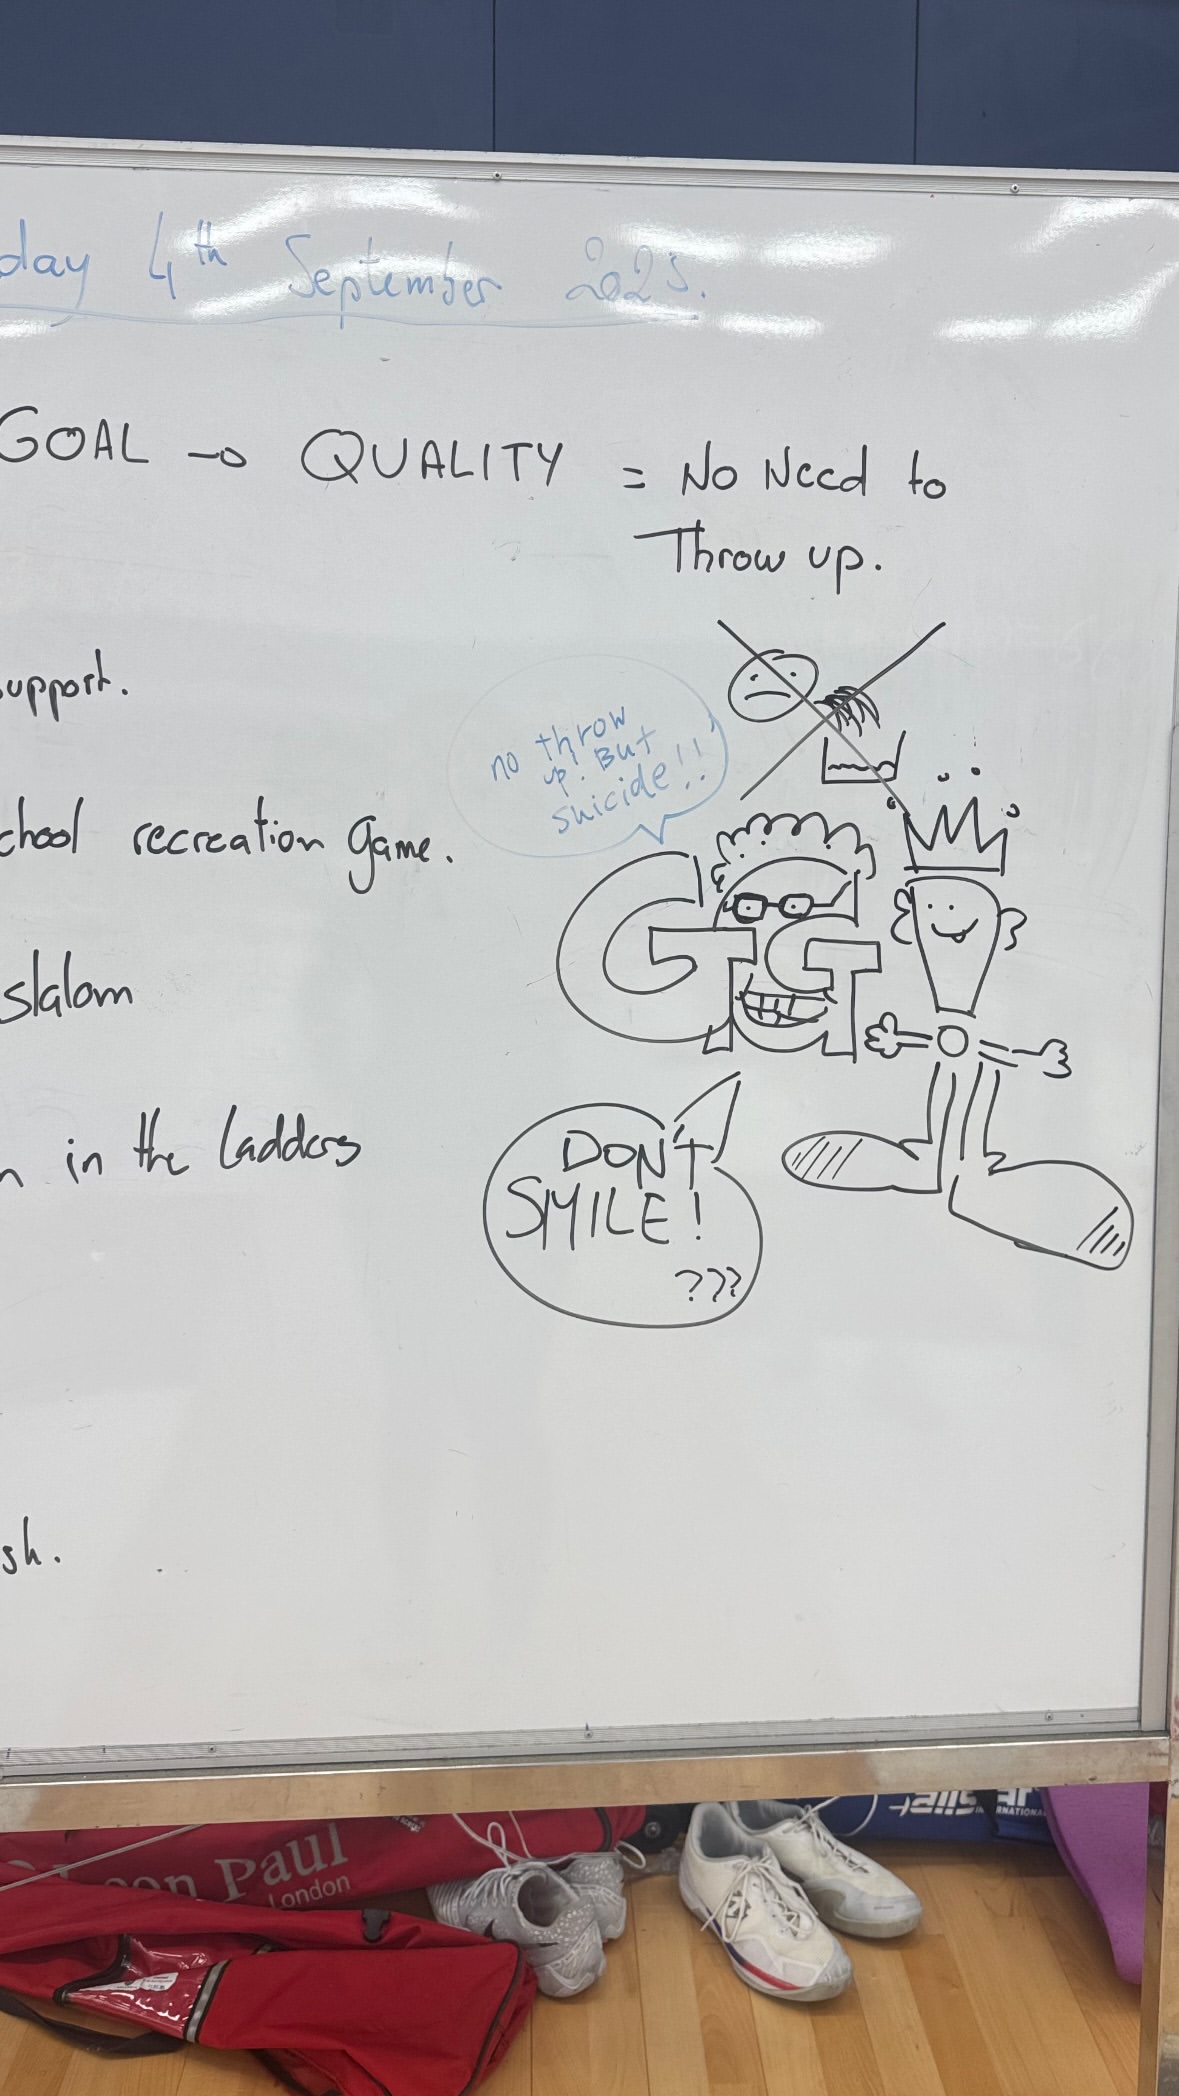 day 4th September 2025.
GOAL → QUALITY = No Need to
Throw up.
support.
no throw
up. But
suicide!!
chool recreation game.
GG
slalom
in the ladders
DON'T
SMILE!
???
sh.
Leon Paul
London
allstar
INTERNATIONAL